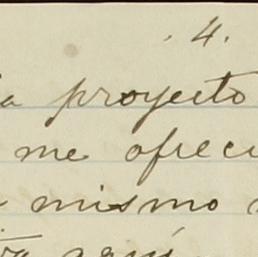 . 4.
a proyecto
me ofreci
mismo
aquí